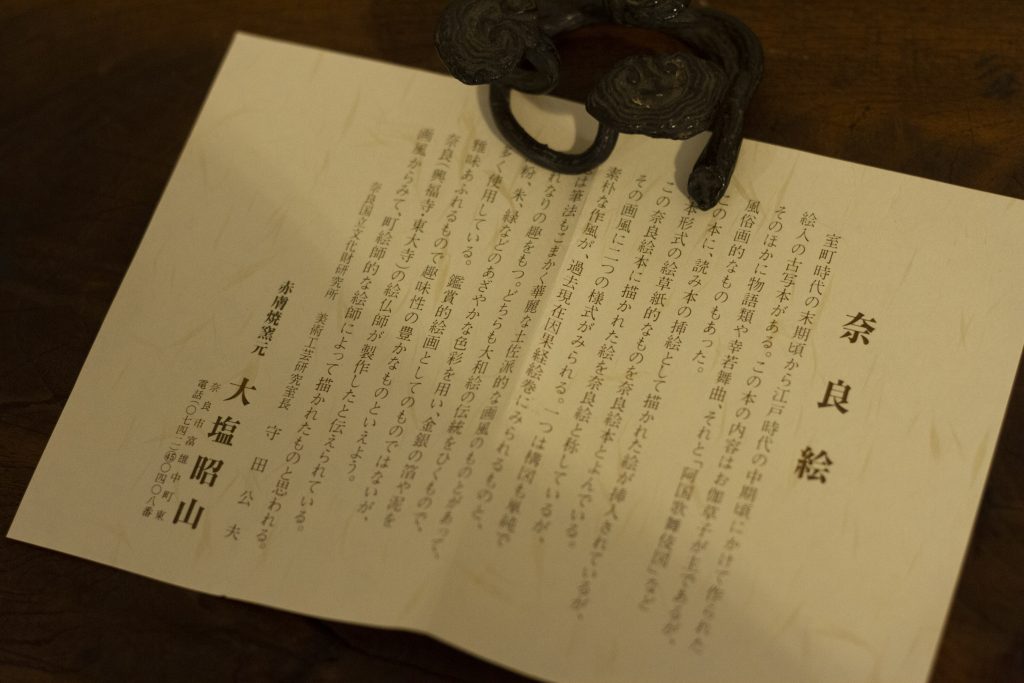 奈良絵
室町時代の末期頃から江戸時代の中期頃にかけて作られた
絵入の古写本がある。この本の内容はお伽草子が主であるが、
そのほかに物語類や幸若舞曲、それと「阿国歌舞伎図」など
風俗画的なものもあった。
この本に、読み本の挿絵として描かれた絵が挿入されているが、
本形式の絵草紙的なものを奈良絵本とよんでいる。
この奈良絵本に描かれた絵を奈良絵と称しているが、
その画風に二つの様式がみられる。一つは構図も単純で
素朴な作風が、過去現在因果経絵巻にみられるものと、
は筆法もこまかく華麗な土佐派的な画風のものとがあって、
れなりの趣をもつ。どちらも大和絵の伝統をひくもので、
粉、朱、緑などのあざやかな色彩を用い、金銀の箔や泥を
多く使用している。鑑賞的絵画としてのものではないが、
雅味あふれるもので趣味性の豊かなものといえよう。
奈良(興福寺・東大寺)の絵仏師が製作したと伝えられている。
画風からみて、町絵師的な絵師によって描かれたものと思われる。
奈良国立文化財研究所 美術工芸研究室長 守田公夫
赤膚焼窯元 大塩昭山
奈良市富雄中町東
電話(〇七四二)㊺〇四〇八番